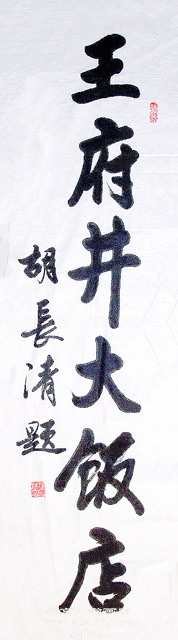 王府井大飯店
胡長清題